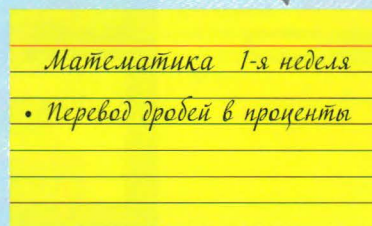 Математика 1-я неделя
• Перевод дробей в проценты